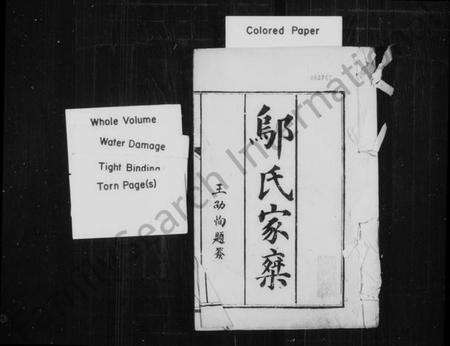 Colored Paper
Whole Volume
Water Damage
Tight Binding
Torn Page(s)
鄔氏家乘
王劭恂題簽
Search Information